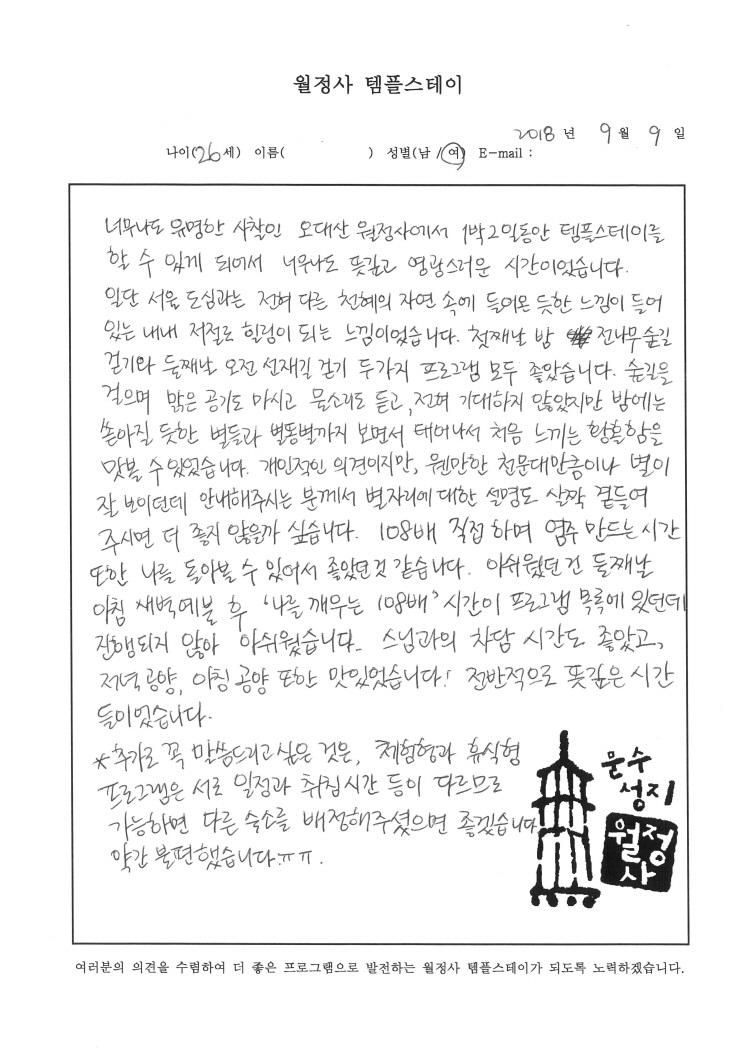 월정사 템플스테이
2018 년 9 월 9 일
나이(26 세) 이름( ) 성별(남 / 여) E-mail :
너무나도 유명한 사찰인 오대산 월정사에서 1박2일동안 템플스테이를
할 수 있게 되어서 너무나도 뜻깊고 영광스러운 시간이었습니다.
일단 서울 도심과는 전혀 다른 천혜의 자연 속에 들어온 듯한 느낌이 들어
있는 내내 저절로 힐링이 되는 느낌이었습니다. 첫째날 밤 전나무숲길
걷기와 둘째날 오전 선재길 걷기 두가지 프로그램 모두 좋았습니다. 숲길을
걸으며 맑은 공기도 마시고 물소리도 듣고, 전혀 기대하지 않았지만 밤에는
쏟아질 듯한 별들과 별똥별까지 보면서 태어나서 처음 느끼는 황홀함을
맛볼 수 있었습니다. 개인적인 의견이지만, 웬만한 천문대만큼이나 별이
잘 보이던데 안내해주시는 분께서 별자리에 대한 설명도 살짝 곁들여
주시면 더 좋지 않을까 싶습니다. 108배 직접 하며 염주 만드는 시간
또한 나를 돌아볼 수 있어서 좋았던것 같습니다. 아쉬웠던 건 둘째날
아침 새벽예불 후 '나를 깨우는 108배' 시간이 프로그램 목록에 있던데
진행되지 않아 아쉬웠습니다. 스님과의 차담 시간도 좋았고,
저녁공양, 아침공양 또한 맛있었습니다! 전반적으로 뜻깊은 시간
들이었습니다.
*추가로 꼭 말씀드리고싶은 것은, 체험형과 휴식형
프로그램은 서로 일정과 취침시간 등이 다르므로
가능하면 다른 숙소를 배정해주셨으면 좋겠습니다
약간 불편했습니다.ㅠㅠ.
문수
성지
월정
사
여러분의 의견을 수렴하여 더 좋은 프로그램으로 발전하는 월정사 템플스테이가 되도록 노력하겠습니다.